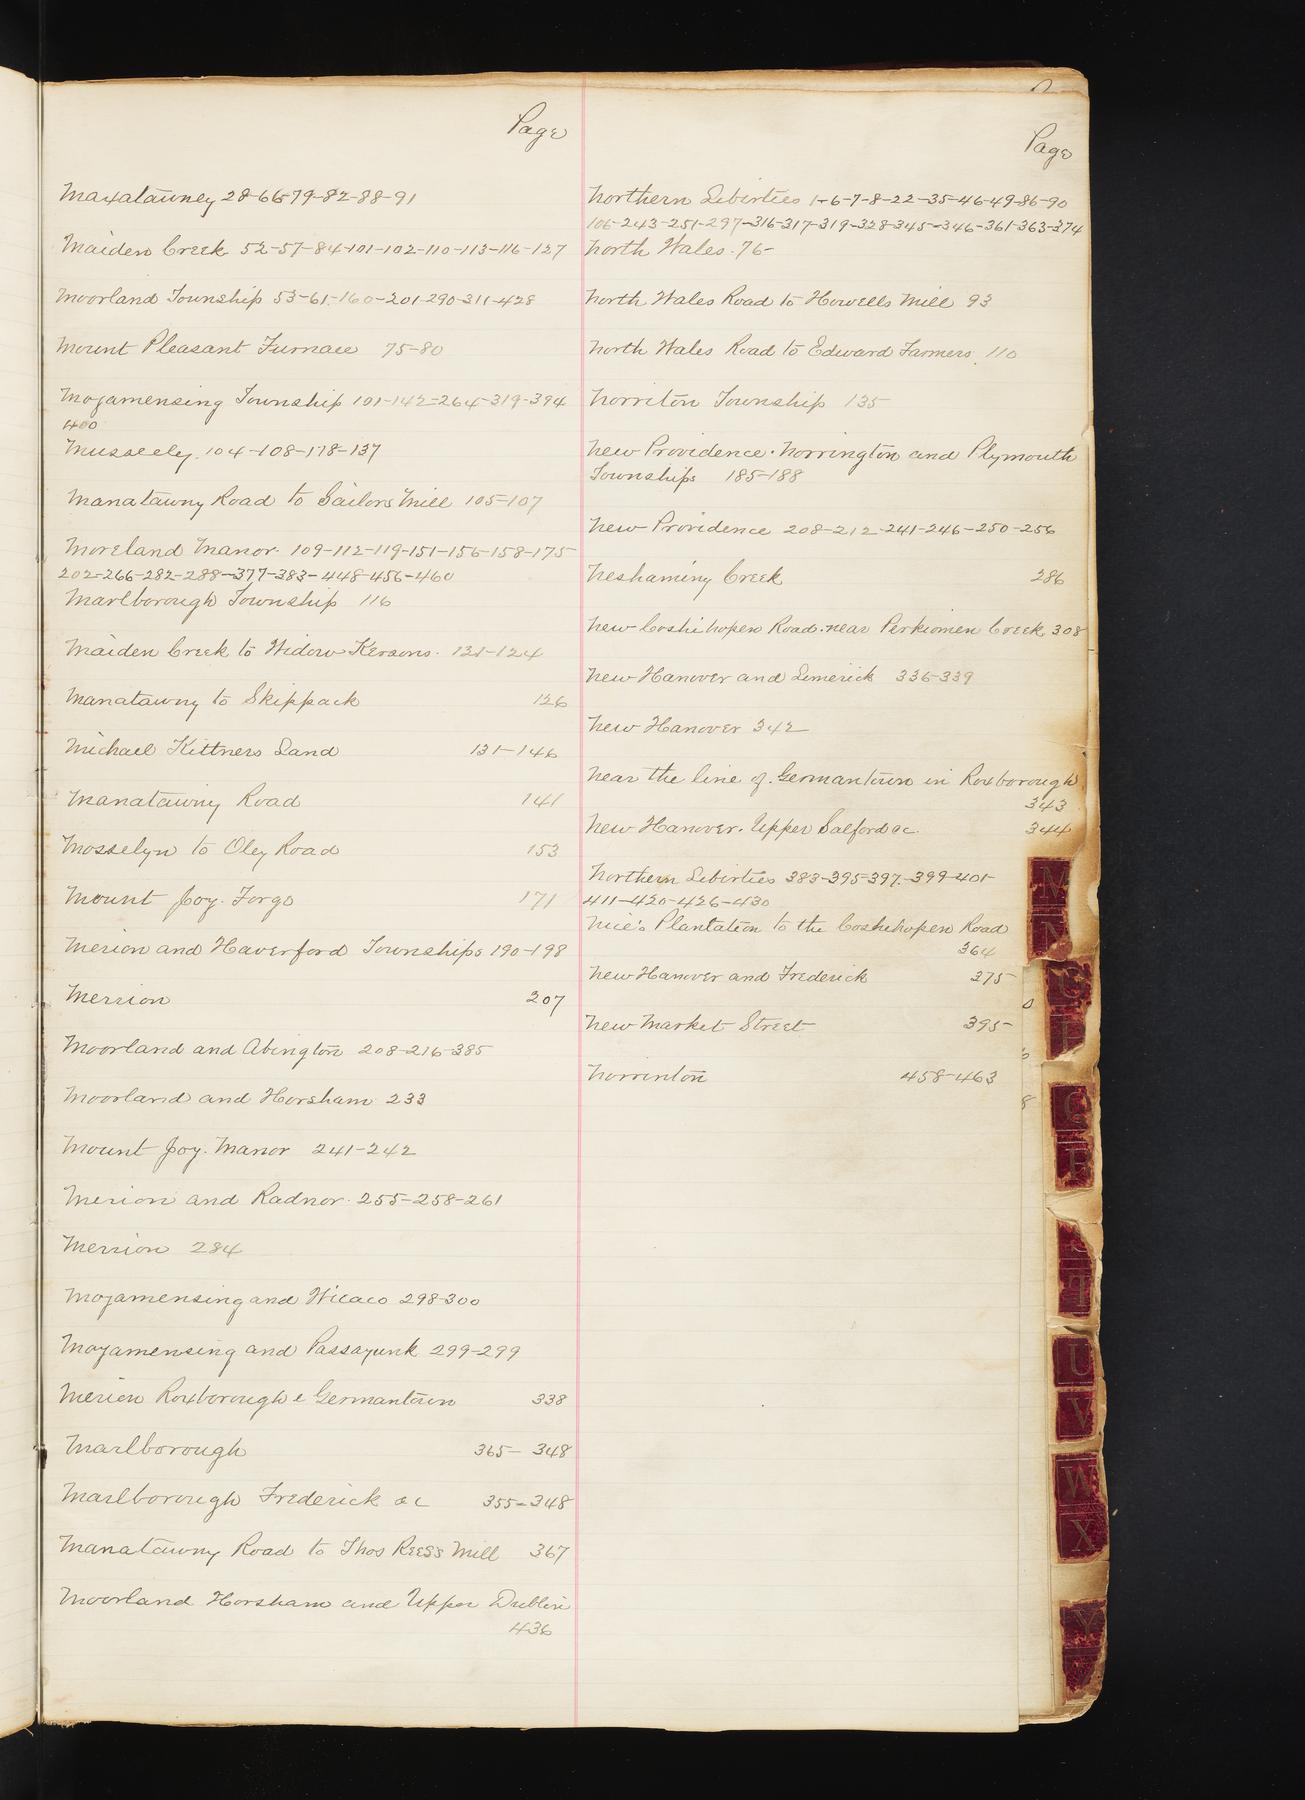 Page
Maxatawney 28-66-79-82-88-91
Maiden Creek 52-57-84-101-102-110-113-116-127
Moorland Township 53-61-160-201-290-311-428
Mount Pleasant Furnace 75-80
Moyamensing Township 101-142-264-319-394
400
Musseely 104-108-118-137
Manatawny Road to Sailors Mill 105-107
Moreland Manor 109-112-119-151-156-158-175
202-266-282-288-377-383-448-456-460
Marlborough Township 116
Maiden Creek to Widow Kersons 121-124
Manatawny to Skippack 126
Michael Kittners Land 131-146
Manatawny Road 141
Mosselyn to Oley Road 153
Mount Joy Forge 171
Merion and Haverford Townships 190-198
Merrion 207
Moorland and Abington 208-216-385
Moorland and Horsham 233
Mount Joy Manor 241-242
Merion and Radnor 255-258-261
Merrion 284
Moyamensing and Wicaco 298-300
Moyamensing and Passayunk 299-299
Merion Roxborough & Germantown 338
Marlborough 365-348
Marlborough Frederick &c 355-348
Manatawny Road to Thos Rees's Mill 367
Moorland Horsham and Upper Dublin
436
Page
Northern Liberties 1-6-7-8-22-35-46-49-86-90
106-243-251-297-316-317-319-328-345-346-361-363-374
North Wales 76-
North Wales Road to Howells Mill 93
North Wales Road to Edward Farmers 110
Norriton Township 135
New Providence Norrington and Plymouth
Townships 185-188
New Providence 208-212-241-246-250-256
Neshaminy Creek 286
New Coshihopen Road near Perkiomen Creek 308
New Hanover and Limerick 336-339
New Hanover 342
Near the line of Germantown in Roxborough
343
New Hanover Upper Salford &c. 344
Northern Liberties 383-395-397-399-401-
411-420-426-430
Nice's Plantation to the Coshehopen Road
364
New Hanover and Frederick 375
New Market Street 395-
Norrinton 458-463
M
N
O
P
Q
R
S
T
U
V
W
X
Y